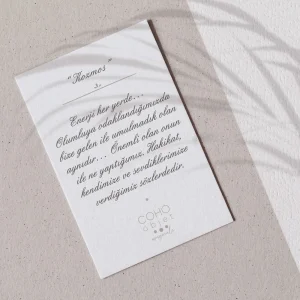 "Kozmos"
Enerji her yerde...
Olumluya odaklandığımızda
bize gelen ile umulmadık olan
aynıdır... Önemli olan onun
ile ne yaptığımız. Hakikat,
kendimize ve sevdiklerimize
verdiğimiz sözlerdedir.
COHO
objet